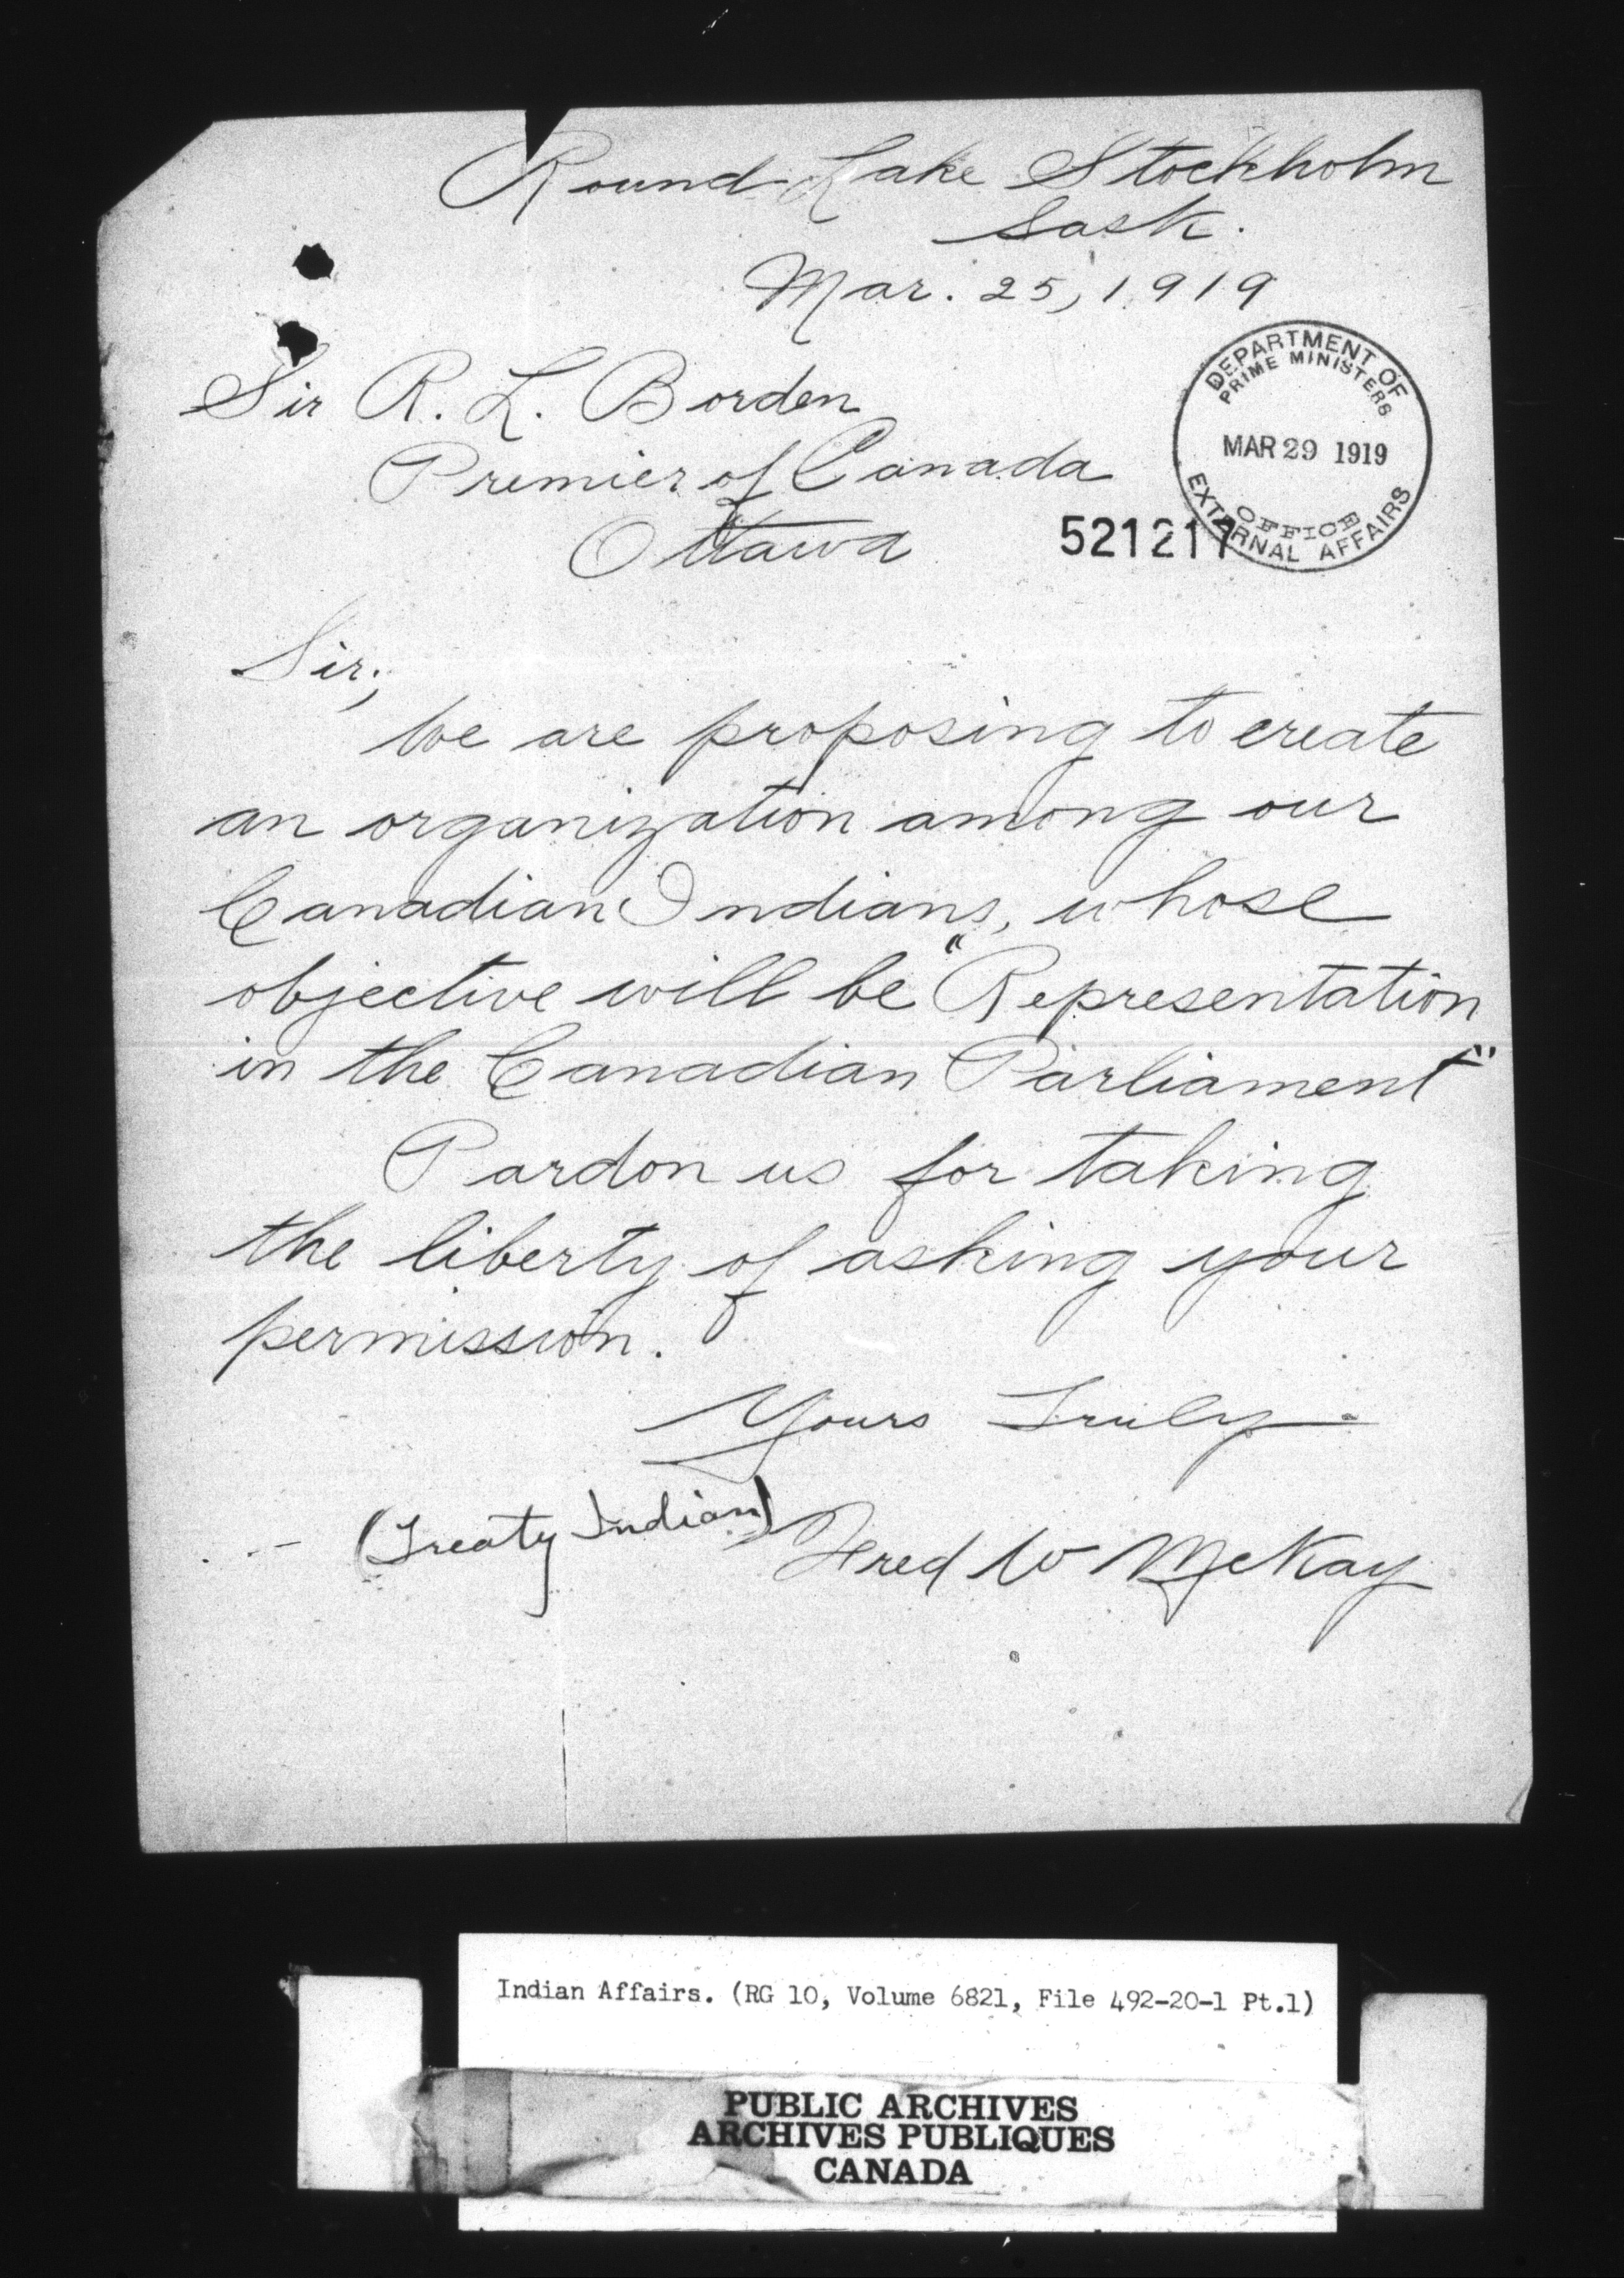 Round Lake Stockholm
Sask.
Mar. 25, 1919
Sir R. L. Borden
Premier of Canada
Ottawa
DEPARTMENT OF
PRIME MINISTERS
MAR 29 1919
OFFICE
EXTERNAL AFFAIRS
521217
Sir;
We are proposing to create
an organization among our
Canadian Indians, whose
objective will be "Representation
in the Canadian Parliament"
Pardon us for taking
the liberty of asking your
permission.
Yours Truly
(Treaty Indian) Fred W McKay
Indian Affairs. (RG 10, Volume 6821, File 492-20-1 Pt.1)
PUBLIC ARCHIVES
ARCHIVES PUBLIQUES
CANADA